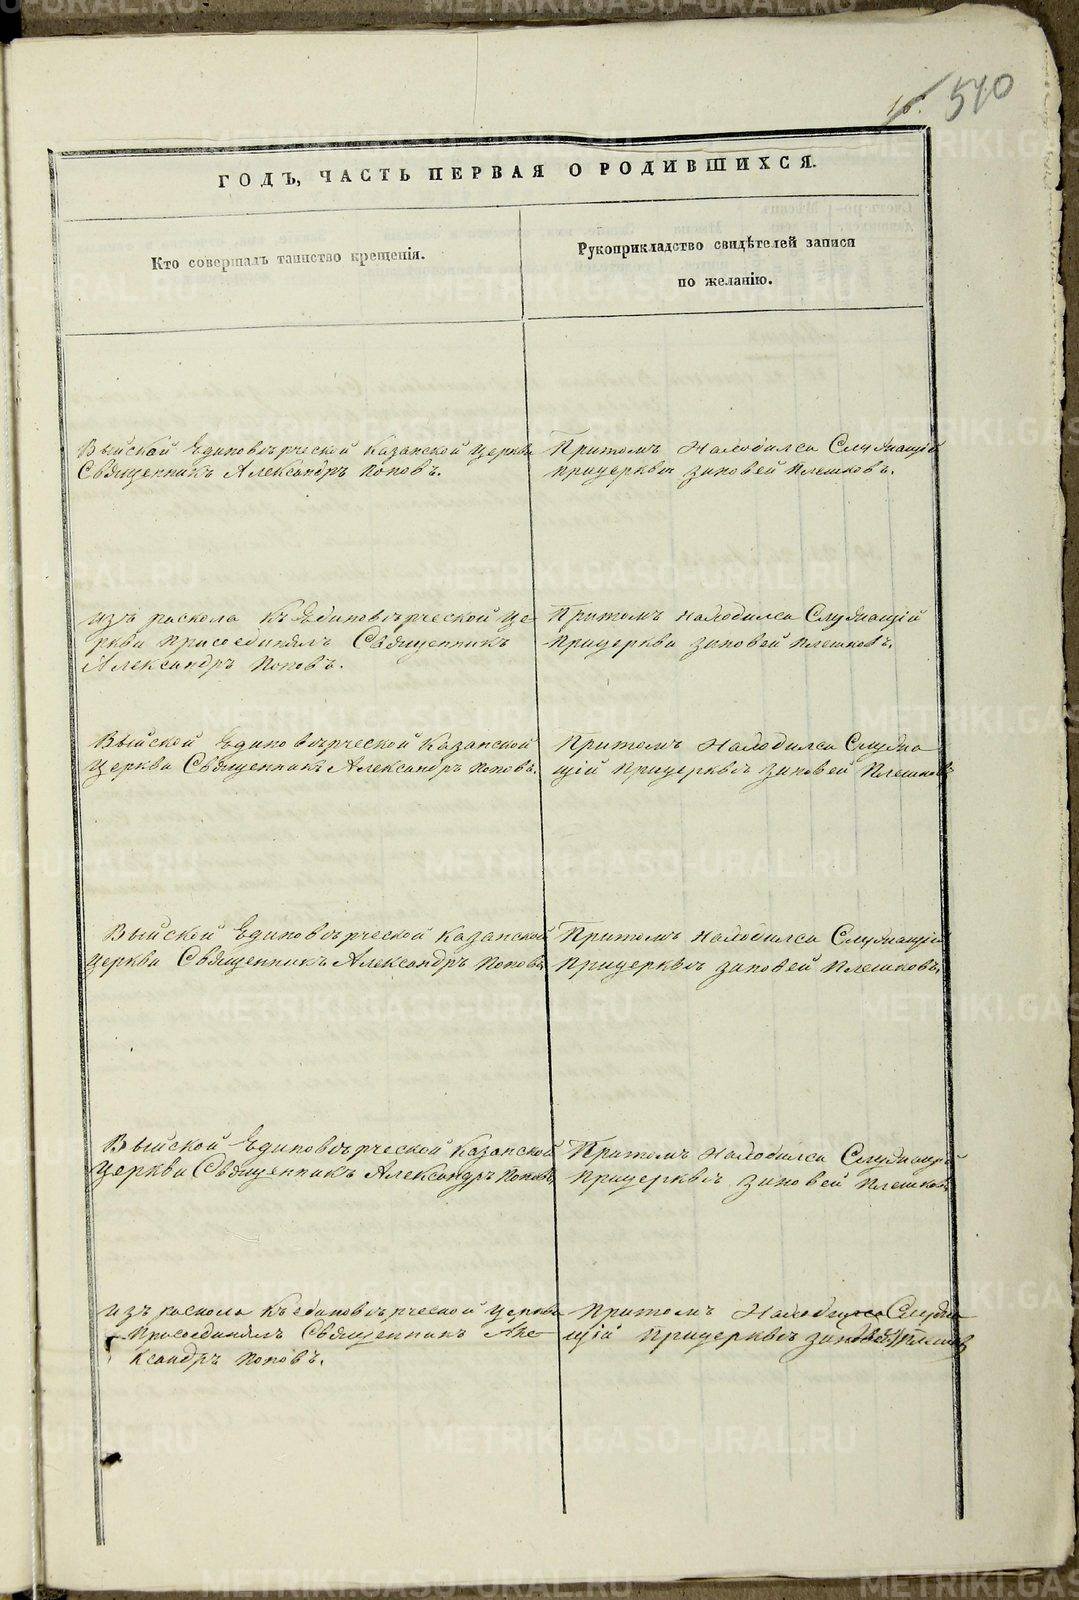 540
ГОДЪ, ЧАСТЬ ПЕРВАЯ О РОДИВШИХСЯ.
Кто совершалъ таинство крещенія.
Рукоприкладство свидѣтелей записи
по желанію.
Выйской Единовѣрческой Казанской Церкви
Священникъ Александръ Поповъ.
Притомъ Находился Служащій
прицерквѣ Зиновей Плешковъ.
изъ раскола къ Единовѣрческой Це
ркви Присоединялъ Священникъ
Александръ Поповъ.
Притомъ находился Служащій
Прицеркви Зиновей Плешковъ.
Выйской Единовѣрческой Казанской
Церкви Священникъ Александръ Поповъ.
Притомъ Находился Служа
щій Прицерквѣ Зиновей Плешковъ
Выйской Единовѣрческой Казанской
Церкви Священникъ Александръ Поповъ
Притомъ находился Служащій
Прицерквѣ Зиновей Плешковъ.
Выйской Единовѣрческой Казанской
Церкви Священникъ Александръ Поповъ
Притомъ Находился Служащій
Прицерквѣ Зиновей Плешковъ
Изъ раскола Къединовѣрческой Церкви
Присоединялъ Священникъ Але
ксандръ Поповъ.
Притомъ Находился Служа
щій Прицерквѣ Зиновей Плешковъ
METRIKI.GASO-URAL.RU